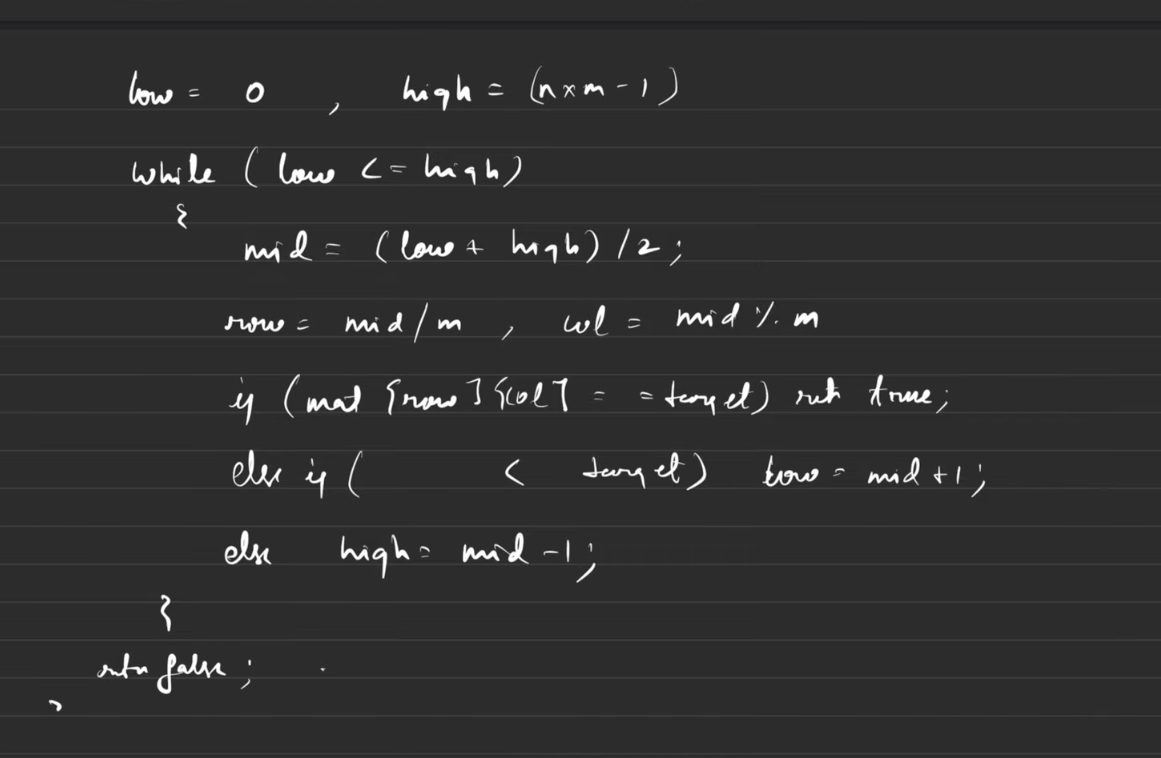 low = 0 , high = (n x m - 1)
while (low <= high)
{
mid = (low + high) / 2 ;
row = mid / m , col = mid % m
if (mat [row] [col] = = target) ret true ;
else if ( < target) low = mid + 1 ;
else high = mid - 1 ;
}
return false ;
}